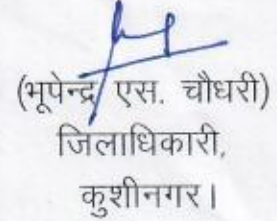 (भूपेन्द्र एस. चौधरी)
जिलाधिकारी,
कुशीनगर।